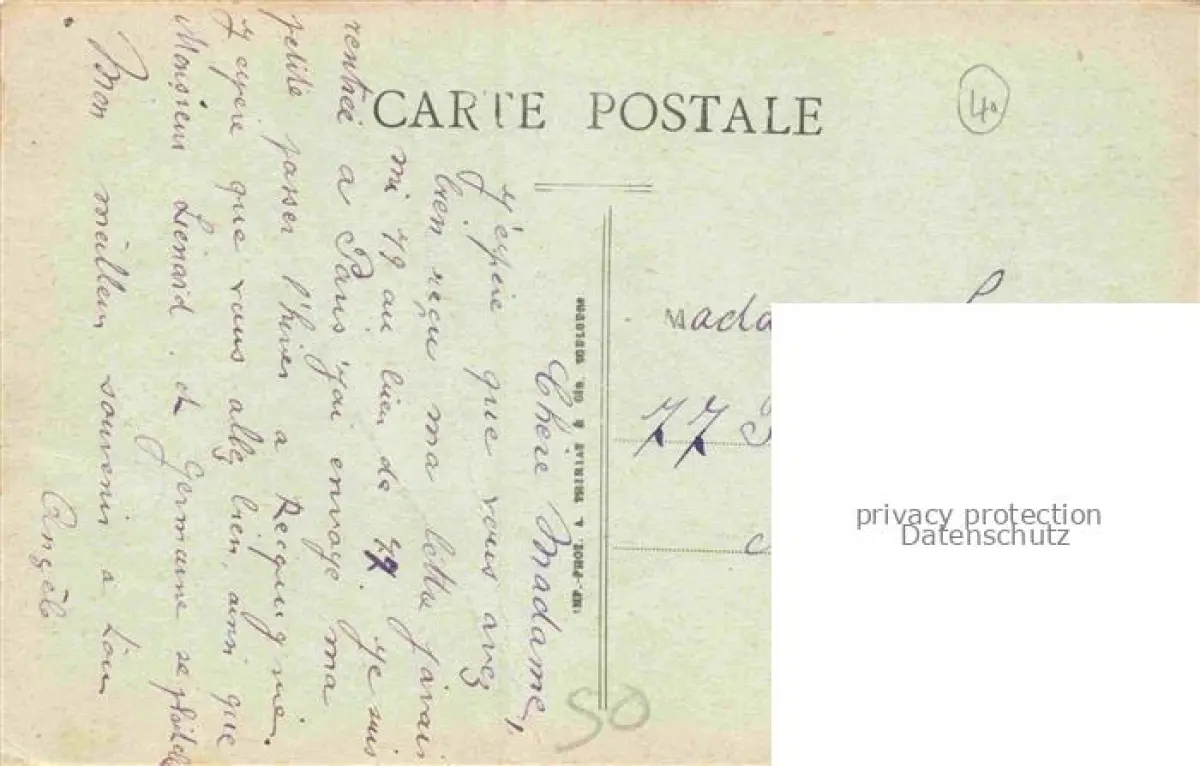 CARTE POSTALE
4°
Chère Madame,
J'éspère que vous avez
bien reçu ma lettre j'avais
mi 79 au lieu de 77. Je suis
rentrée a Paris j'ai envoyé ma
petite passer l'hiver a
J'espère que vous allez bien, ainsi que
Monsieur Lienard. et Germaine se
Mon meilleur souvenir a tous
Angèle
IMP-PHOT. A.
50
Mada
77
privacy protection
Datenschutz